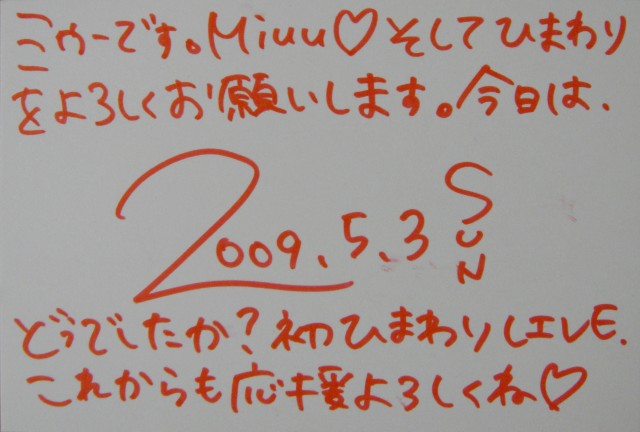 ミゥーです。Miuu♡そしてひまわり
をよろしくお願いします。今日は、
2009.5.3 SUN
どうでしたか？初ひまわりしエレE.
これからも応援よろしくね♡